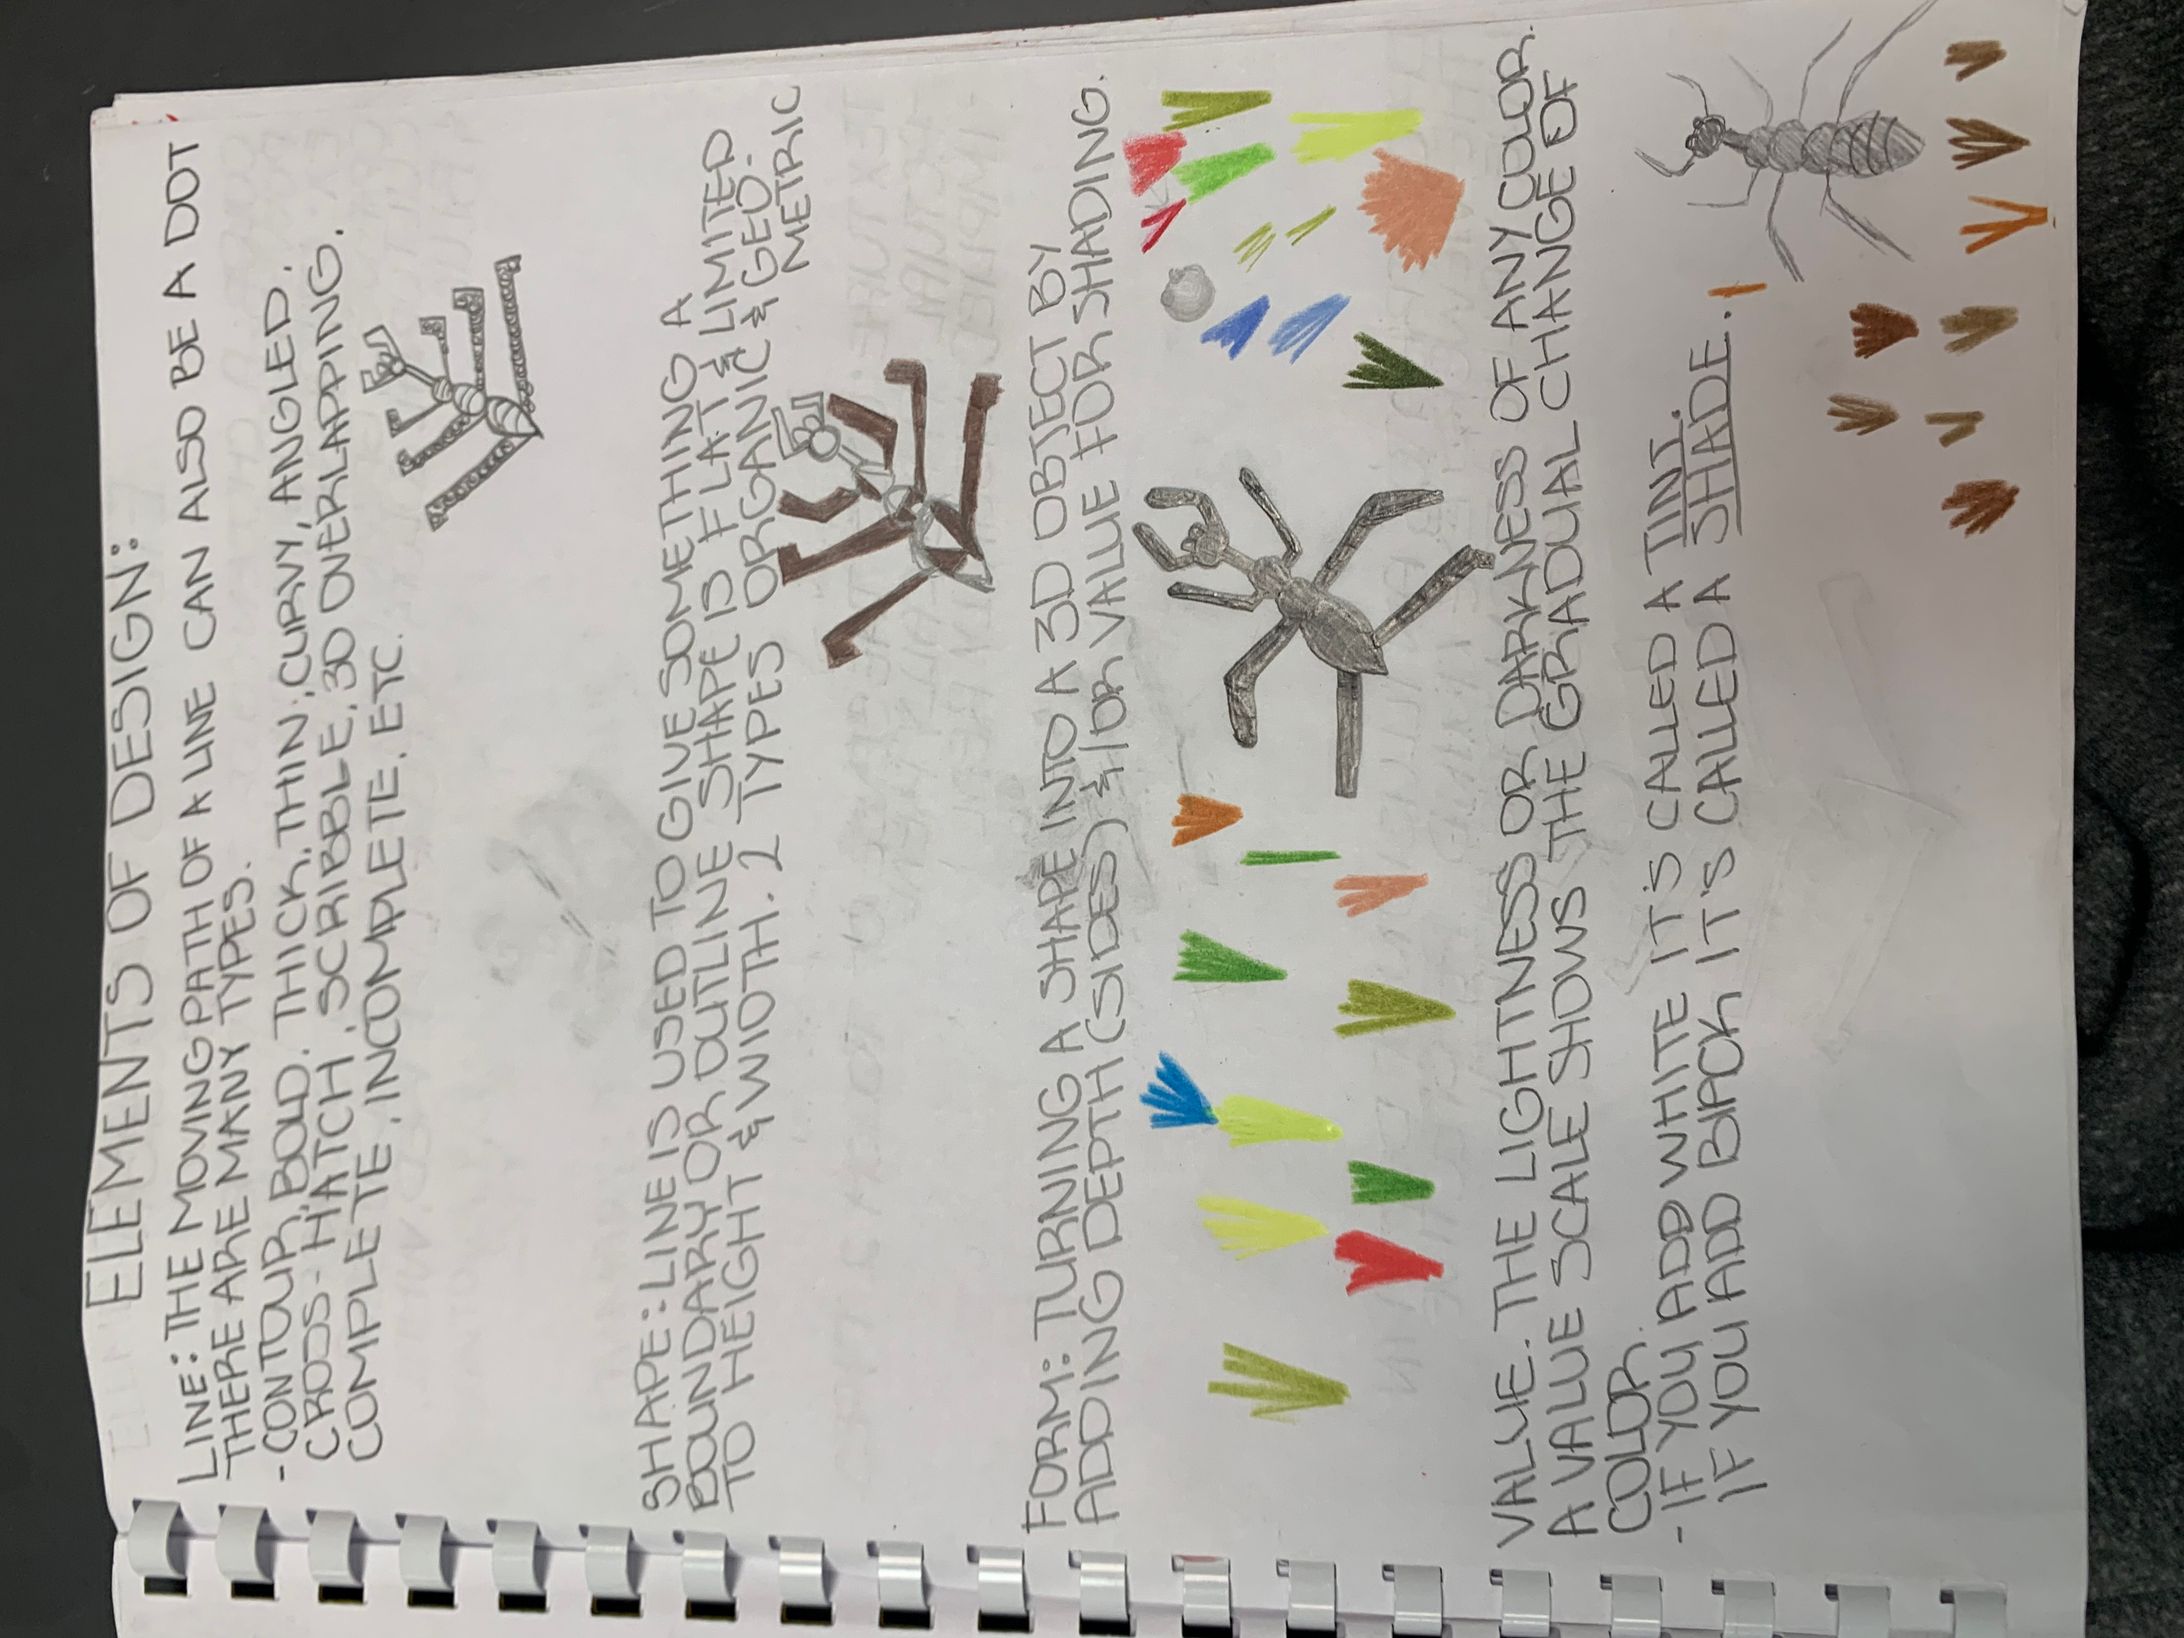 ELEMENTS OF DESIGN:
LINE: THE MOVING PATH OF A LINE CAN ALSO BE A DOT
THERE ARE MANY TYPES.
- CONTOUR, BOLD. THICK, THIN, CURVY, ANGLED.
CROSS-HATCH, SCRIBBLE, 3D OVERLAPPING.
COMPLETE, INCOMPLETE. ETC.
SHAPE: LINE IS USED TO GIVE SOMETHING A
BOUNDARY OR OUTLINE SHAPE IS FLAT & LIMITED
TO HEIGHT & WIDTH. 2 TYPES ORGANIC & GEO-
METRIC
FORM: TURNING A SHAPE INTO A 3D OBJECT BY
ADDING DEPTH (SIDES) &/OR VALUE FOR SHADING.
VALUE. THE LIGHTNESS OR DARKNESS OF ANY COLOR.
A VALUE SCALE SHOWS THE GRADUAL CHANGE OF
COLOR.
- IF YOU ADD WHITE IT'S CALLED A TINT.
IF YOU ADD BLACK IT'S CALLED A SHADE.